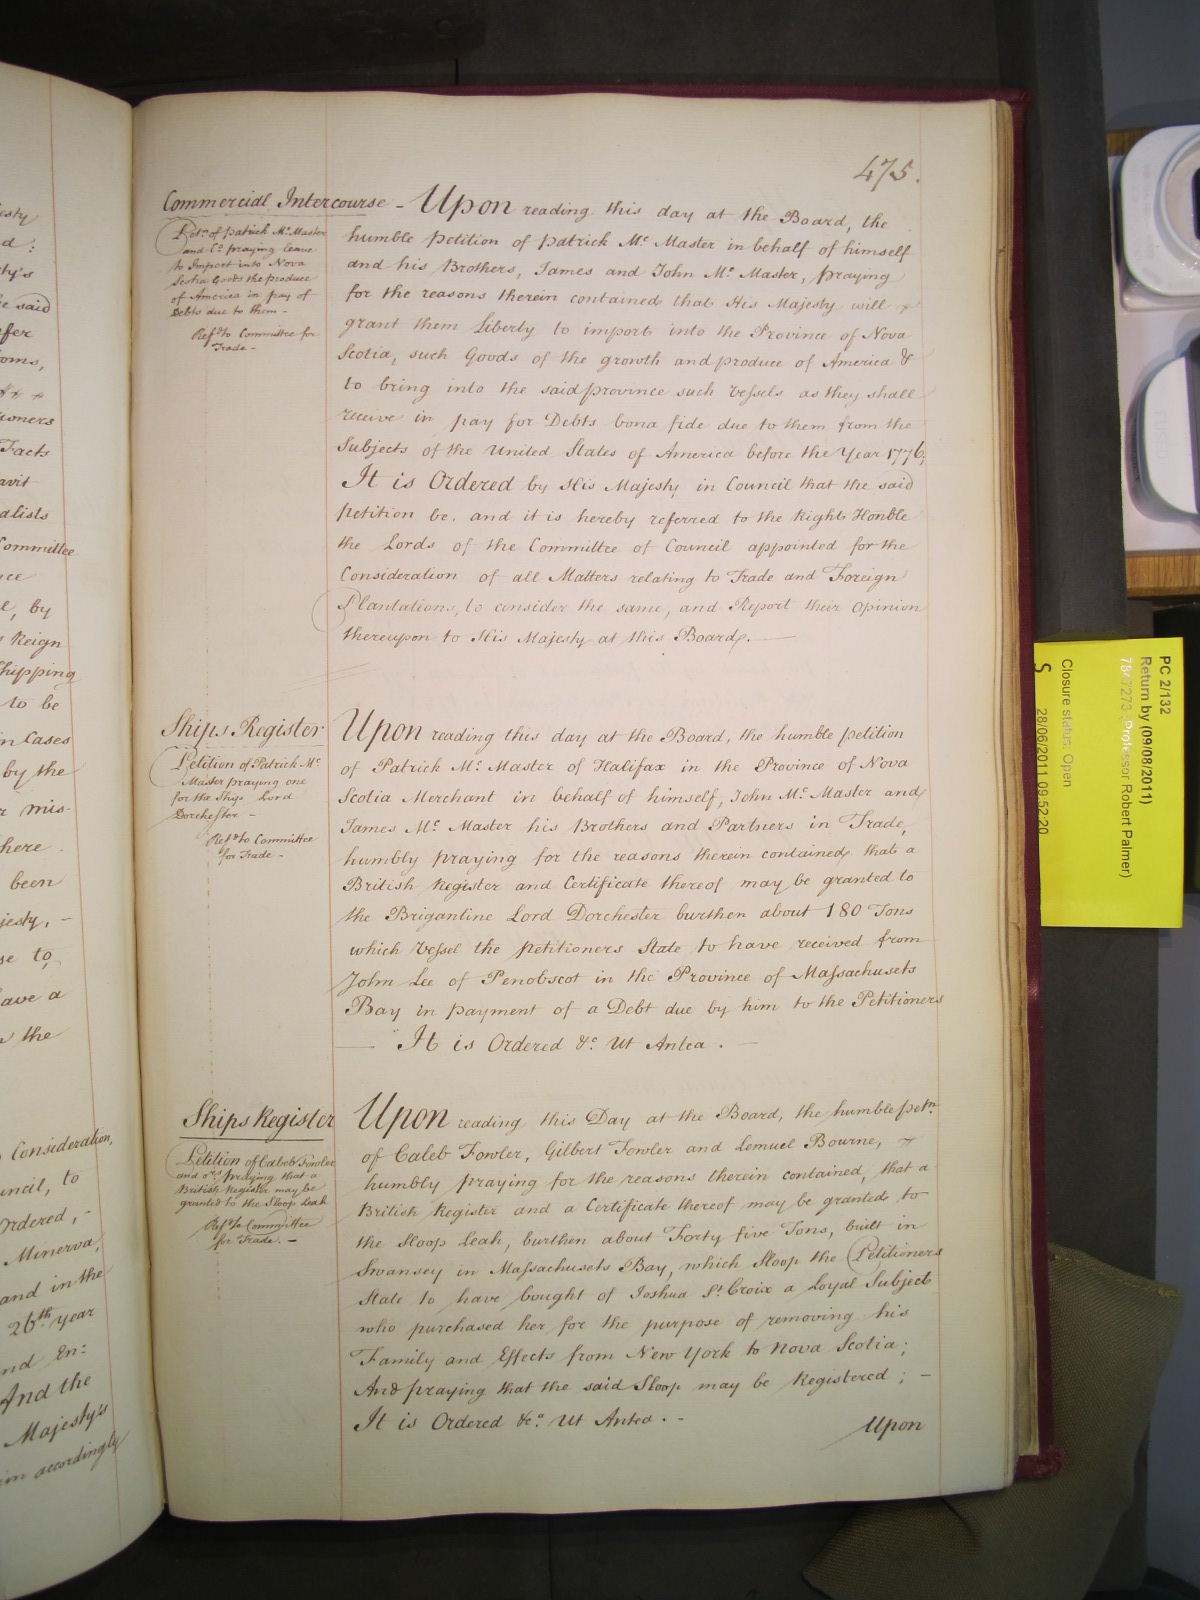 475.
Commercial Intercourse - Upon reading this day at the Board, the
Petn. of Patrick Mc. Master
and Co. praying leave
to Import into Nova
Scotia Goods the produce
of America in pay of
Debts due to them -
Refd. to Committee for
Trade -
humble Petition of Patrick Mc. Master in behalf of himself
and his Brothers, James and John Mc. Master, praying
for the reasons therein contained that His Majesty will
grant them Liberty to import into the Province of Nova
Scotia, such Goods of the growth and produce of America &
to bring into the said province such Vessels as they shall
receive in pay for Debts bona fide due to them from the
Subjects of the United States of America before the Year 1776,
It is Ordered by His Majesty in Council that the said
Petition be. and it is hereby referred to the Right Honble
the Lords of the Committee of Council appointed for the
Consideration of all Matters relating to Trade and Foreign
Plantations, to consider the same, and Report their Opinion
thereupon to His Majesty at this Board. —
Ships Register
Petition of Patrick Mc.
Master praying one
for the Ship Lord
Dorchester -
Refd. to Committee
for Trade -
Upon reading this day at the Board, the humble petition
of Patrick Mc. Master of Halifax in the Province of Nova
Scotia Merchant in behalf of himself, John Mc. Master and
James Mc. Master his Brothers and Partners in Trade,
humbly praying for the reasons therein contained, that a
British Register and Certificate thereof may be granted to
the Brigantine Lord Dorchester burthen about 180 Tons
which Vessel the Petitioners State to have received from
John Lee of Penobscot in the Province of Massachusets
Bay in payment of a Debt due by him to the Petitioners
— It is Ordered &c. Ut Antea. —
Ships Register
Petition of Caleb Fowler
and ors. praying that a
British Register may be
granted to the Sloop Leah
Refd. to Committee
for Trade. -
Upon reading this Day at the Board, the humble petn.
of Caleb Fowler, Gilbert Fowler and Lemuel Bourne,
humbly praying for the reasons therein contained, that a
British Register and a Certificate thereof may be granted to
the Sloop Leah, burthen about Forty five Tons, built in
Swansey in Massachusets Bay, which Sloop the Petitioners
State to have bought of Joshua St. Croix a Loyal Subject
who purchased her for the purpose of removing his
Family and Effects from New York to Nova Scotia;
And praying that the said Sloop may be Registered; -
It is Ordered &c. Ut Antea. -
Upon
PC 2/132
Return by (09/08/2011)
7847273 (Professor Robert Palmer)
Closure status: Open
S
28/06/2011 09:52:20
said
Facts
alists
Committee
by
Reign
Shipping
to be
in Cases
by the
mis-
here
been
to,
have a
the
Consideration,
to
Ordered, -
Minerva,
and in the
26th. year
And the
Majesty's
accordingly